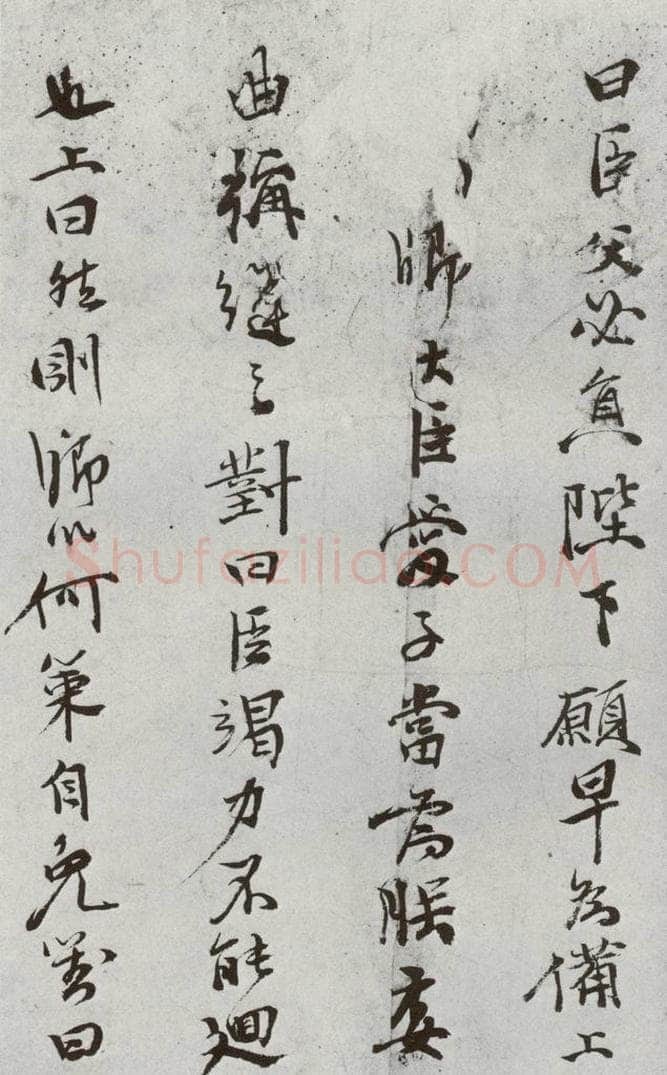 曰臣父必負陛下願早為備上
卿大臣愛子當為朕委
曲彌縫之對曰臣竭力不能迴
也上曰然則卿以何策自免對曰
Shufaziliao.COM